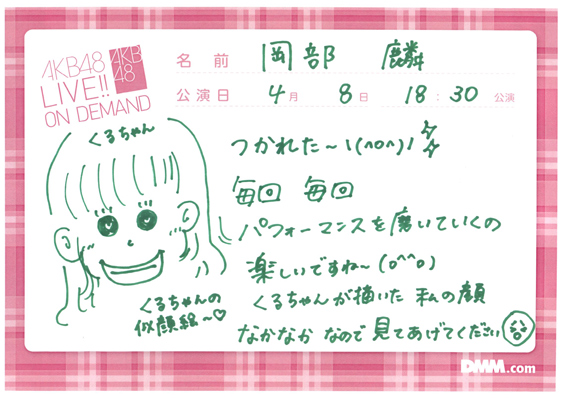 AKB48
LIVE!!
ON DEMAND
AKB
48
名前 岡部 麟
公演日 4月 8日 18:30 公演
くるちゃん
つかれた〜\(^o^)/
毎回 毎回
パフォーマンスを磨いていくの
楽しいですね〜(o^^o)
くるちゃんが描いた 私の顔
なかなか なので 見てあげてください
くるちゃんの
似顔絵〜♡
DMM.com